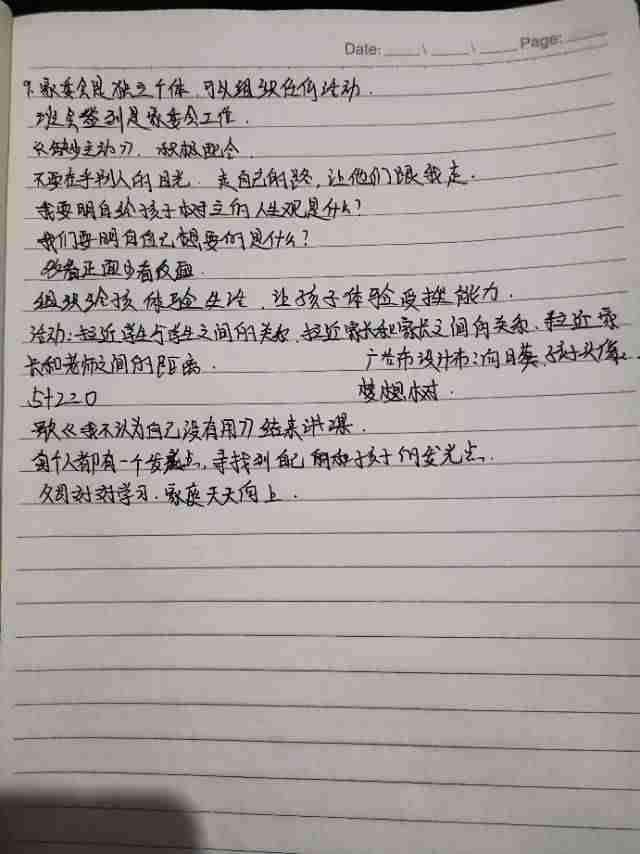 Date: ___\___\___ Page: ___
9. 家委会是独立个体,可以组织任何活动.
班会签到是家委会工作.
不缺少主动力, 积极配合
不要在乎别人的目光. 走自己的路,让他们跟我走.
我要明白给孩子树立的人生观是什么?
我们要明白自己想要的是什么?
多看正面少看反面.
组织孩子体验生活,让孩子体验受挫能力.
活动:拉近学生与学生之间的关系,拉近家长和家长之间的关系,拉近家
长和老师之间的距离.
广告布设计布:向日葵,孩子头像.
5+2=0
梦想树.
歌《我不认为自己没有用》结束讲课.
每个人都有一个发光点,寻找到自己的和孩子们的发光点.
父母对对学习.家庭天天向上.